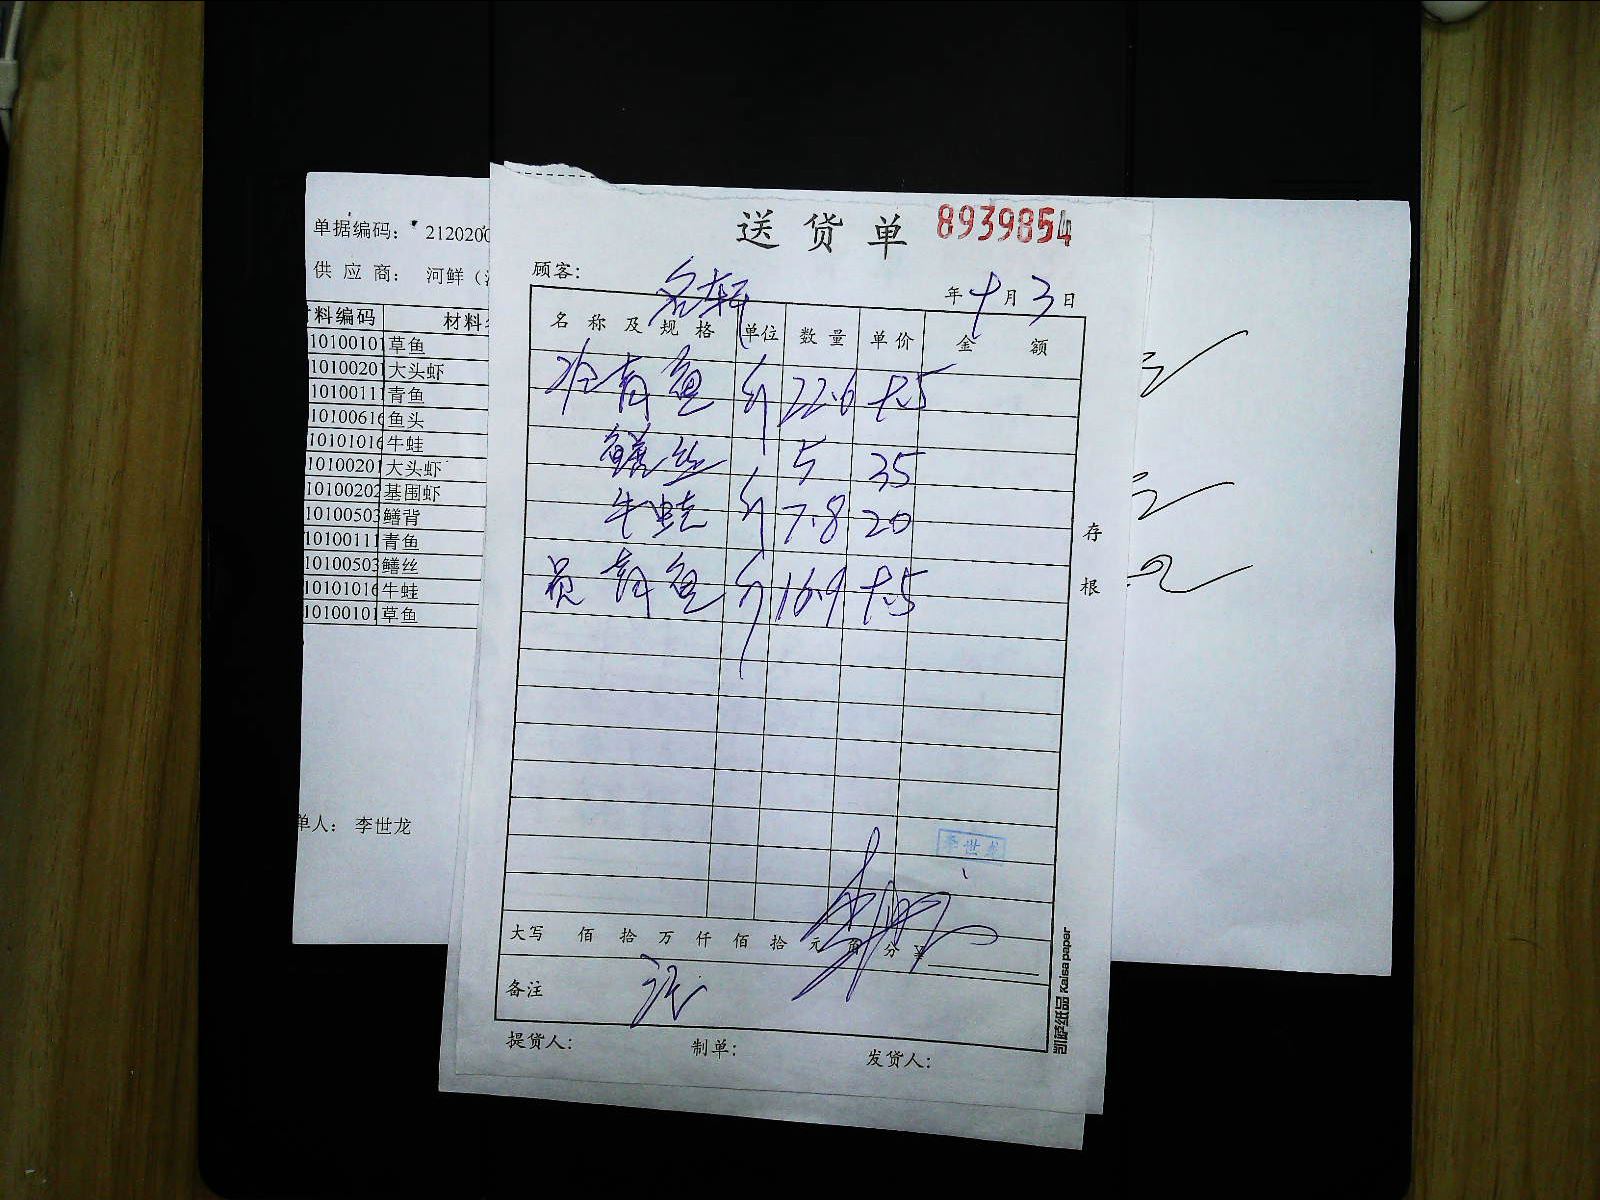 单据编码： 2120200
供 应 商： 河鲜（
料编码 材料
10100101 草鱼
10100201 大头虾
10100111 青鱼
10100616 鱼头
10101016 牛蛙
10100201 大头虾
10100202 基围虾
10100503 鳝背
10100111 青鱼
10100503 鳝丝
10101016 牛蛙
10100101 草鱼
单人： 李世龙
送货单 8939854
顾客： 名轩
年 十 月 3 日
名称及规格 单位 数量 单价 金额
青鱼 斤 22.6 十.5
鳝丝 5 35
牛蛙 斤 7.8 20
员 青鱼 斤 16.9 十.5
存根
李世龙
大写 佰 拾 万 仟 佰 拾 元 角 分 ¥
备注
提货人： 制单： 发货人：
凯萨纸品 Kaisa paper